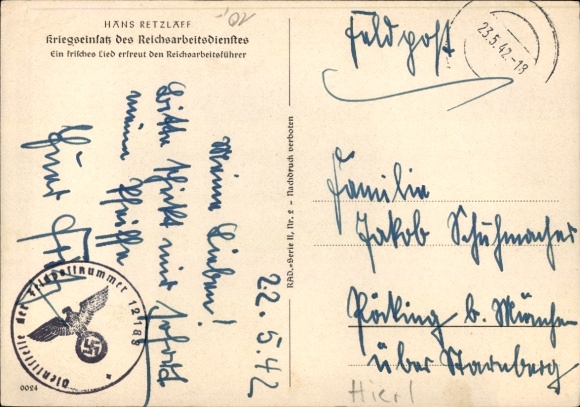 HANS RETZLAFF
Kriegseinsatz des Reichsarbeitsdienstes
Ein frisches Lied erfreut den Reichsarbeitsführer
-,20
22.5.42
Meine Lieben!
Bitte schickt mir sofort
meine Pfeife
Euer
Dienststelle der Feldpostnummer 12189
0024
RAD.-Serie II, Nr. 2 - Nachdruck verboten
Feldpost
23.5.42.-18
Familie
Jakob Schuhmacher
Pöcking b. München
über Starnberg
Hierl